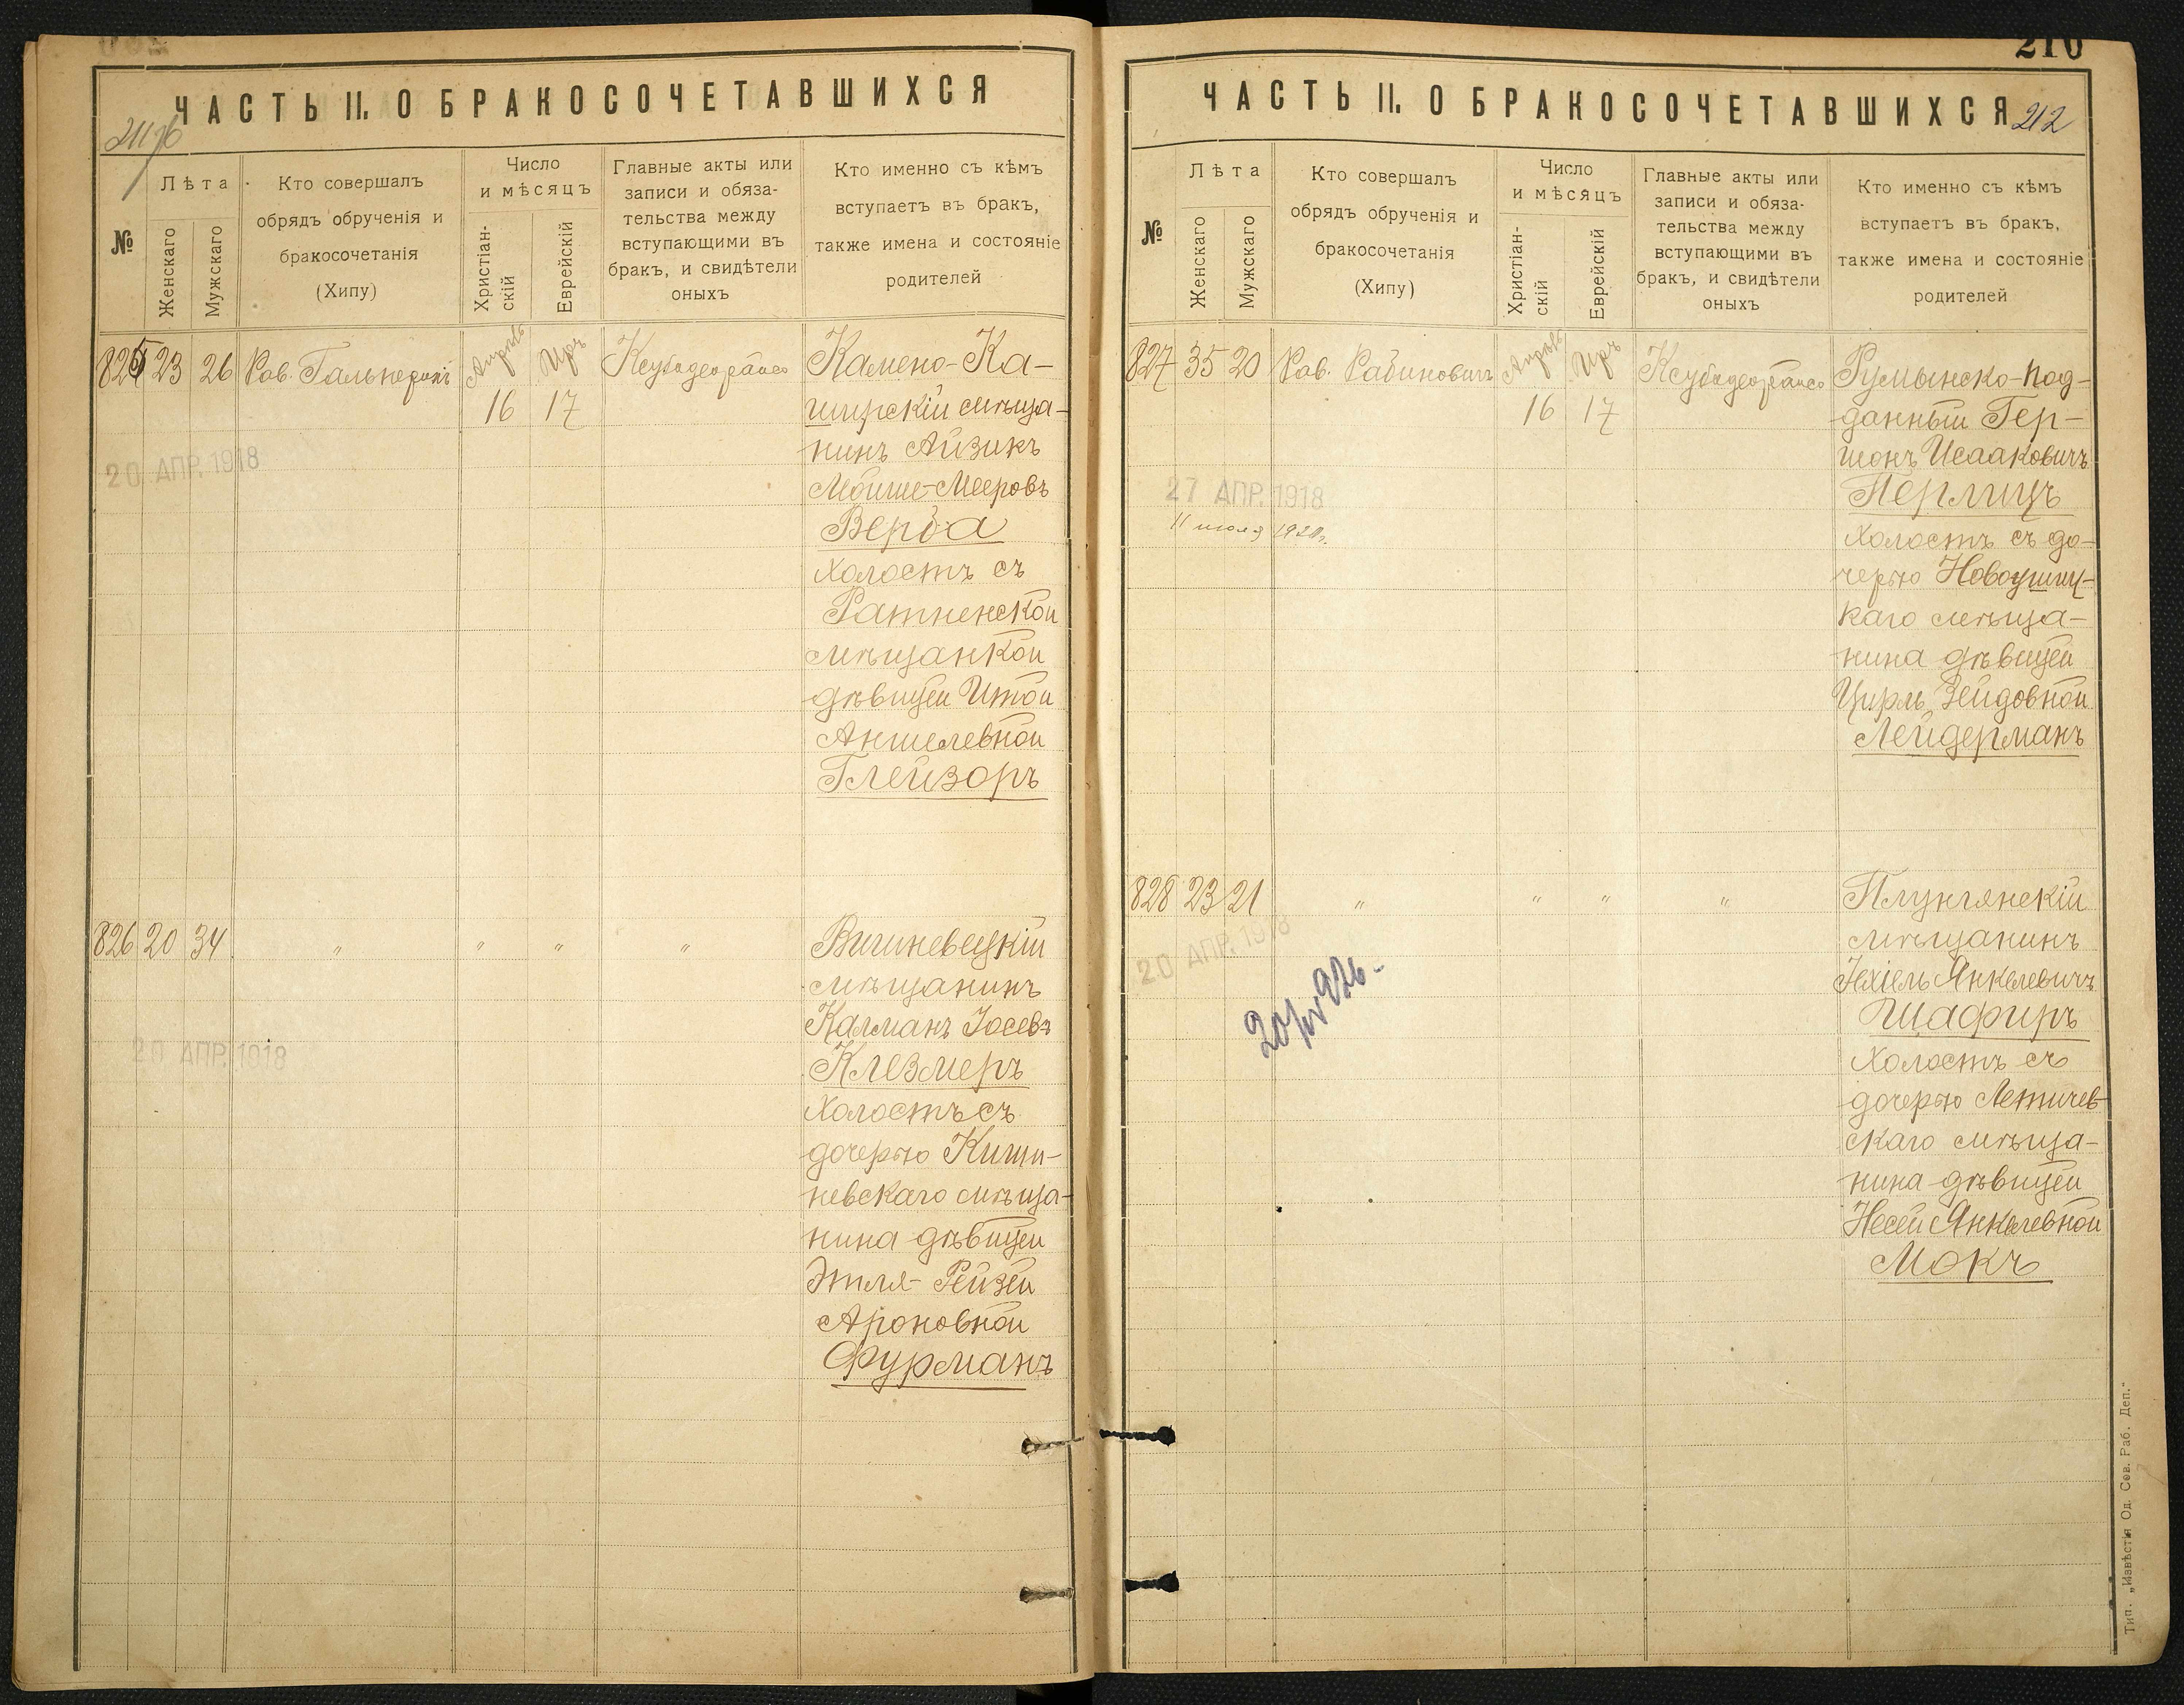 ЧАСТЬ II. О БРАКОСОЧЕТАВШИХСЯ
№
Лѣта
Женскаго
Мужскаго
Кто совершалъ
обрядъ обрученія и
бракосочетанія
(Хипу)
Число
и мѣсяцъ
Христіан-
скій
Еврейскій
Главные акты или
записи и обяза-
тельства между
вступающими въ
бракъ, и свидѣтели
оныхъ
Кто именно съ кѣмъ
вступаетъ въ бракъ,
также имена и состояніе
родителей
825 23 26 Рав. Гальперинъ Апрѣль Иръ
16 17
20 АПР. 1918
Камено-Ка-
ширскій мѣща-
нинъ Айзикъ
Мойше-Мееровъ
Верба
холостъ съ
Ратненской
мѣщанкой
дѣвицей Итой
Аншелевной
Глейзоръ
826 20 34 " " " "
20 АПР. 1918
Вишневецкій
мѣщанинъ
Калманъ Іосевъ
Клезмеръ
холостъ съ
дочерью Киши-
невскаго мѣща-
нина дѣвицей
Этля-Рейзей
Ароновной
Фурманъ
210
ЧАСТЬ II. О БРАКОСОЧЕТАВШИХСЯ 212
№
Лѣта
Женскаго
Мужскаго
Кто совершалъ
обрядъ обрученія и
бракосочетанія
(Хипу)
Число
и мѣсяцъ
Христіан-
скій
Еврейскій
Главные акты или
записи и обяза-
тельства между
вступающими въ
бракъ, и свидѣтели
оныхъ
Кто именно съ кѣмъ
вступаетъ въ бракъ,
также имена и состояніе
родителей
827 35 20 Рав. Рабиновичъ Апрѣль Иръ
16 17
27 АПР. 1918
Румынско-под-
данный Гер-
шонъ Исааковичъ
Перлицъ
холостъ съ до-
черью Новоушиц-
каго мѣща-
нина дѣвицей
Цирль Зейдовной
Лейдерманъ
828 23 21 " " " "
20 АПР. 1918
Плунгянскій
мѣщанинъ
Іехіель Янкелевичъ
Шафиръ
холостъ съ
дочерью Летичев-
скаго мѣща-
нина дѣвицей
Несей Янкелевной
Мокъ
Тип. „Извѣстія Од. Сов. Раб. Деп."